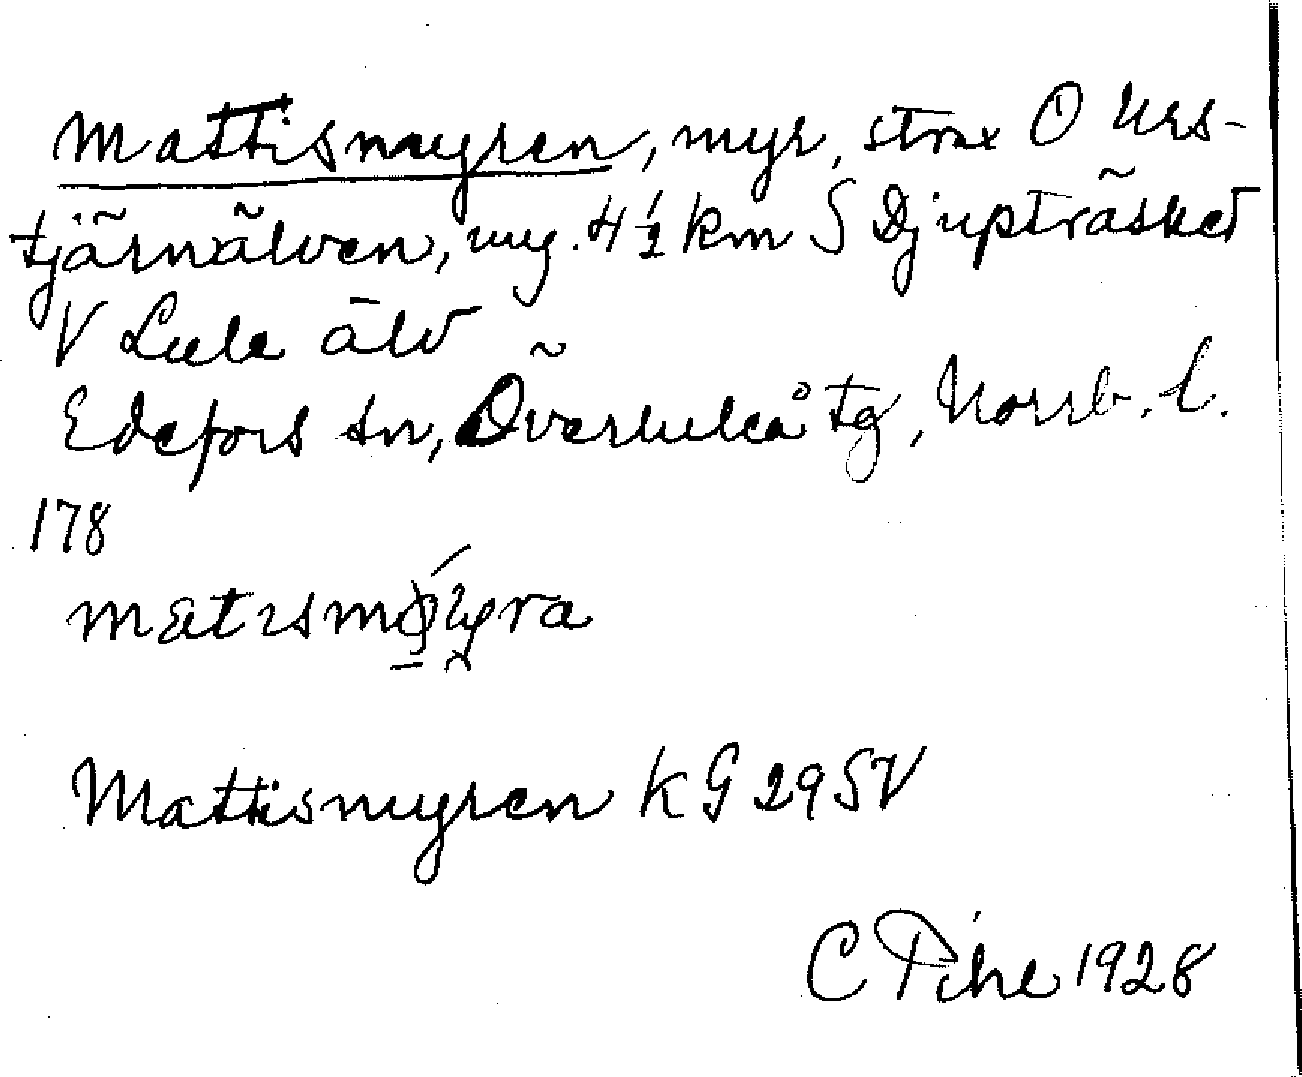 Mattismyren, myr, strax O Urs-
tjärnälven, ung. 4 1/2 km S Djupträsket
V Lule älv
Edefors sn, Överluleå tg, Norrb. l.
178
Mattismyren KG 29 SV
C Pihl 1928